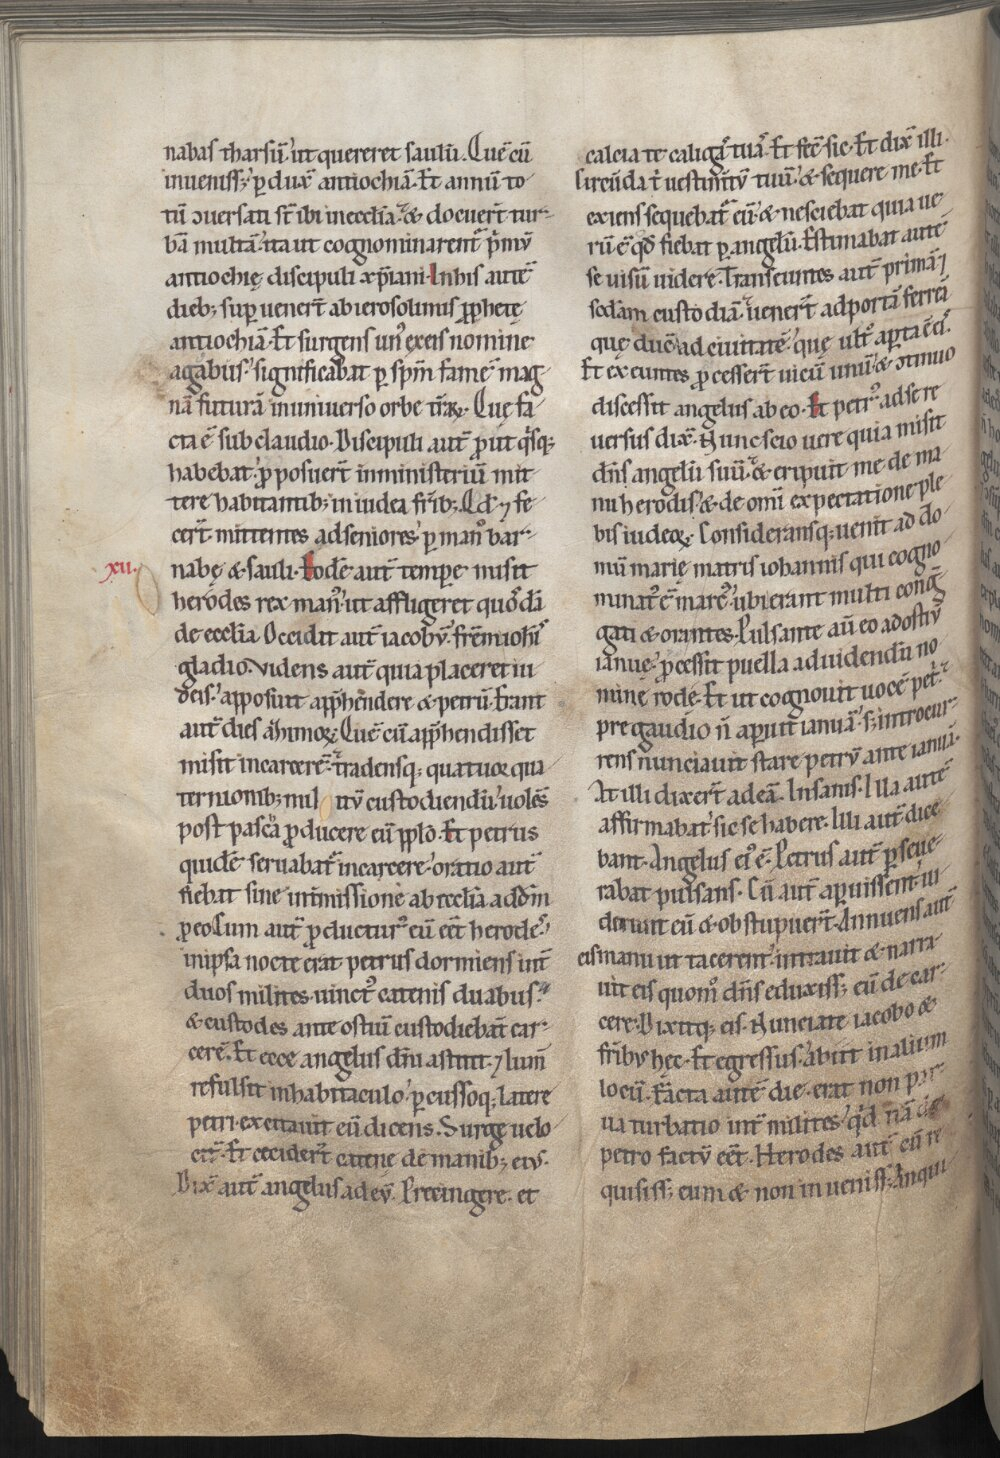 nabas tharsū. ut quereret saulū. Quē cū
inueniss; ꝑduxͥ antiochiā. Et annū to
tū ɔuersati st̄ ibi in ecclīa. & docuer̄t tur
bā multā. ita ut cognominarent᷑ p̄mū
antiochię discipuli xp̄iani. In his autē
dieb; suꝑuener̄t ab ierosolimis ꝓphetę
antiochiā. Et surgens un᷒ ex eis nomine
agabus. significabat ꝑ sp̄m famē mag
nā futurā in uniuerso orbe tr̄aꝝ. Quę fa
cta ē sub claudio. Discipuli aut̄ ꝓut q̄sq;
habebat. ꝓposuer̄t in ministeriū mit
tere habitantib; in iudea fr̄ib; Qd̄ ⁊ fe
cer̄t mittentes ad seniores. ꝑ man᷒ bar
xii. nabę & sauli. Eodē aut̄ tempr̄e misit
herodes rex man᷒. ut affligeret quosdā
de ecclīa. Occidit aut̄ iacobū. fr̄em ioh̄is
gladio. Videns aut̄ quia placeret iu
deis. apposuit app̄hendere & petrū. Erant
aut̄ dies aẓimoꝝ. Quē cū app̄hendisset
misit in carcerē. tradensq; quatuor qua
ternionib; mil itū custodiendū. uolēs
post pascā ꝓducere eū pp̄lo. Et petrus
quidē seruabat᷑ in carcere. oratio aut̄
fiebat sine int̄missione ab ecclīa ad dm̄
ꝓ eo. Cum aut̄ ꝓductur᷒ eū eēt herodes.
in ipsa nocte erat petrus dormiens int̄
duos milites. uinct᷒ catenis duabus.
& custodes ante ostiū custodiebāt car
cerē. Et ecce angelus dn̄i astitit. ⁊ lum̄
refulsit in habitaculo. ꝑcussoq; latere
petri. excitauit eū dicens. Surge uelo
cit̄. Et cecider̄t catene de manib; ei᷒.
Dix̄ aut̄ angelus ad eū. Precingere. et
calcia te caligas tuas. Et fec̄ sic. Et dix̄ illi.
Circūda t̄ uestim̄tū tuū. & sequere me. Et
exiens sequebat᷑ eū. & nesciebat quia ue
rū ē qd̄ fiebat ꝑ angelū. Estimabat autē
se uisū uidere. Transeuntes aut̄ primā ⁊
sc̄dam custodiā. uener̄t ad portā ferreā
quę ducit ad ciuitatē. quę ult᷑ aꝑta ē eis.
Et exeuntes ꝓcesser̄t uicū unū. & ɔtinuo
discessit angelus ab eo. Et petr᷒ ad se re
uersus dix̄. Nunc scio uere quia misit
dn̄s angelū suū. & eripuit me de ma
nu herodis. & de omī expectatione ple
bis iudeoꝝ. Consideransq; uenit ad do
mū marię matris iohannis qui cogno
minat᷒ ē marc᷒. ubi erant multi cong̃
gati & orantes. Pulsante aū eo ad ostiū
ianuę. ꝓcessit puella ad uidendū. no
mine rode. Et ut cognouit uocē pet̄.
pre gaudio n̄ aꝑuit ianuā. s; intro cur
rens nunciauit stare petrū ante ianuā.
At illi dixer̄t ad eā. Insanis. Illa autē
affirmabat sic se habere. Illi aut̄ dice
bant. Angelus ei᷒ ē. Petrus aut̄ ꝑseue
rabat pulsans. Cū aut̄ aꝑuissent. ui
derunt eū & obstupuer̄t. Annuens aut̄
eis manu ut tacerent. intrauit & narra
uit eis quom̄ dn̄s eduxiss; eū de car
cere. Dixitq; eis. Nunciate iacobo &
fr̄ibus hęc. Et egressus. abiit in alium
locū. Facta autē die. erat non par
ua turbatio int̄ milites. qd̄nā de
petro factū eēt. Herodes aut̄ cū re
quisiss; eum & non inueniss; Inqui